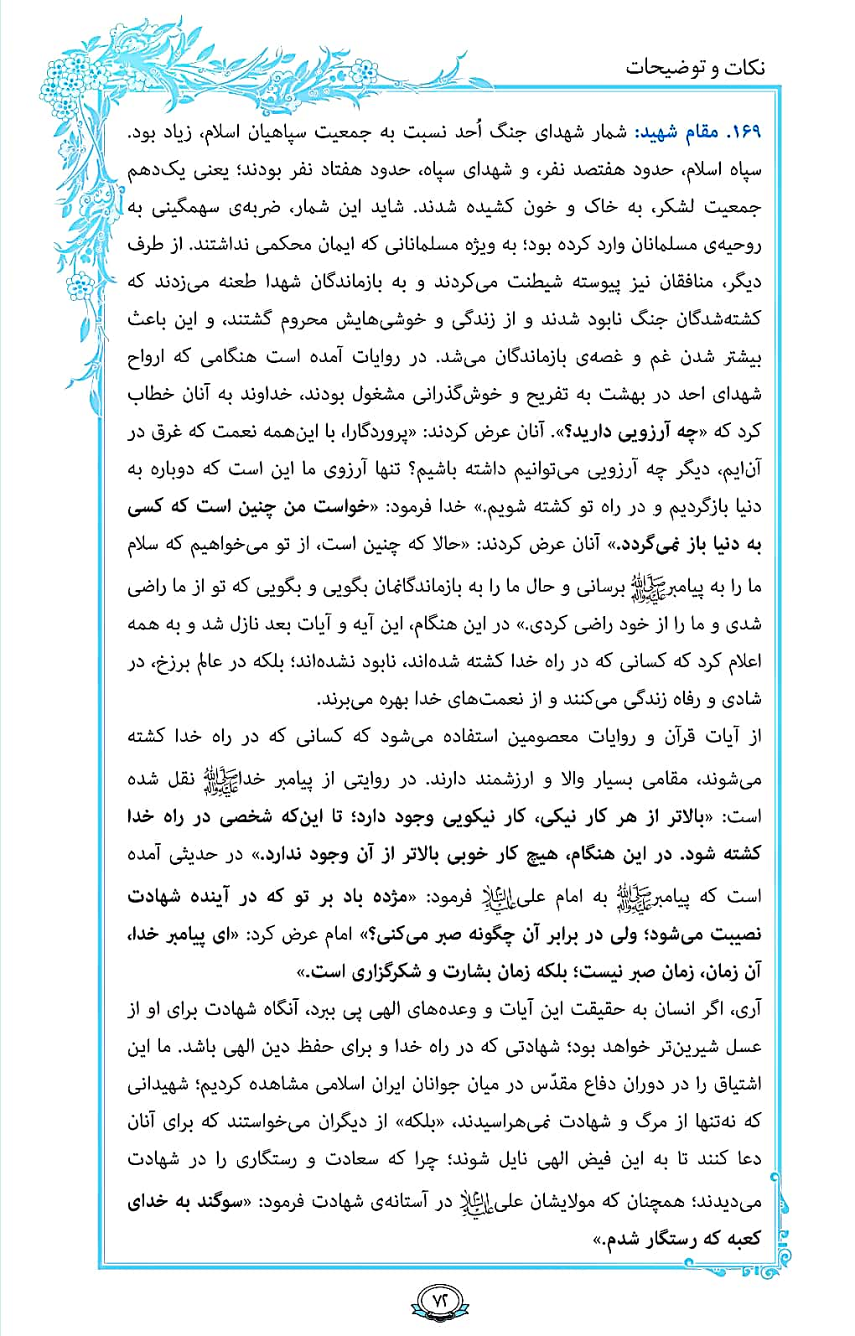 نکات و توضیحات
۱۶۹. مقام شهید: شمار شهدای جنگ اُحد نسبت به جمعیت سپاهیان اسلام، زیاد بود.
سپاه اسلام، حدود هفتصد نفر، و شهدای سپاه، حدود هفتاد نفر بودند؛ یعنی یک‌دهم
جمعیت لشکر، به خاک و خون کشیده شدند. شاید این شمار، ضربه‌ی سهمگینی به
روحیه‌ی مسلمانان وارد کرده بود؛ به ویژه مسلمانانی که ایمان محکمی نداشتند. از طرف
دیگر، منافقان نیز پیوسته شیطنت می‌کردند و به بازماندگان شهدا طعنه می‌زدند که
کشته‌شدگان جنگ نابود شدند و از زندگی و خوشی‌هایش محروم گشتند، و این باعث
بیشتر شدن غم و غصه‌ی بازماندگان می‌شد. در روایات آمده است هنگامی که ارواح
شهدای احد در بهشت به تفریح و خوش‌گذرانی مشغول بودند، خداوند به آنان خطاب
کرد که «چه آرزویی دارید؟». آنان عرض کردند: «پروردگارا، با این‌همه نعمت که غرق در
آن‌ایم، دیگر چه آرزویی می‌توانیم داشته باشیم؟ تنها آرزوی ما این است که دوباره به
دنیا بازگردیم و در راه تو کشته شویم.» خدا فرمود: «خواست من چنین است که کسی
به دنیا باز نمی‌گردد.» آنان عرض کردند: «حالا که چنین است، از تو می‌خواهیم که سلام
ما را به پیامبرﷺ برسانی و حال ما را به بازماندگانمان بگویی و بگویی که تو از ما راضی
شدی و ما را از خود راضی کردی.» در این هنگام، این آیه و آیات بعد نازل شد و به همه
اعلام کرد که کسانی که در راه خدا کشته شده‌اند، نابود نشده‌اند؛ بلکه در عالم برزخ، در
شادی و رفاه زندگی می‌کنند و از نعمت‌های خدا بهره می‌برند.
از آیات قرآن و روایات معصومین استفاده می‌شود که کسانی که در راه خدا کشته
می‌شوند، مقامی بسیار والا و ارزشمند دارند. در روایتی از پیامبر خداﷺ نقل شده
است: «بالاتر از هر کار نیکی، کار نیکویی وجود دارد؛ تا این‌که شخصی در راه خدا
کشته شود. در این هنگام، هیچ کار خوبی بالاتر از آن وجود ندارد.» در حدیثی آمده
است که پیامبرﷺ به امام علی علیه‌السلام فرمود: «مژده باد بر تو که در آینده شهادت
نصیبت می‌شود؛ ولی در برابر آن چگونه صبر می‌کنی؟» امام عرض کرد: «ای پیامبر خدا،
آن زمان، زمان صبر نیست؛ بلکه زمان بشارت و شکرگزاری است.»
آری، اگر انسان به حقیقت این آیات و وعده‌های الهی پی ببرد، آنگاه شهادت برای او از
عسل شیرین‌تر خواهد بود؛ شهادتی که در راه خدا و برای حفظ دین الهی باشد. ما این
اشتیاق را در دوران دفاع مقدّس در میان جوانان ایران اسلامی مشاهده کردیم؛ شهیدانی
که نه‌تنها از مرگ و شهادت نمی‌هراسیدند، «بلکه» از دیگران می‌خواستند که برای آنان
دعا کنند تا به این فیض الهی نایل شوند؛ چرا که سعادت و رستگاری را در شهادت
می‌دیدند؛ همچنان که مولایشان علی علیه‌السلام در آستانه‌ی شهادت فرمود: «سوگند به خدای
کعبه که رستگار شدم.»
۷۲